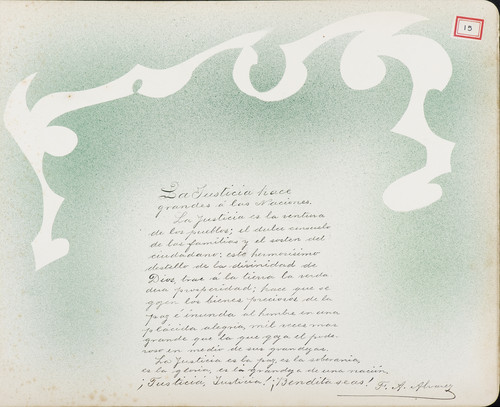 15
La Justicia hace
grandes á las Naciones.
La Justicia es la
de los pueblos; el dulce consuelo
de las familias y el sosten del
ciudadano; este hermosísimo
destello de la divinidad de
Dios, trae á la tierra la verda
dera prosperidad; hace que se
gozen los bienes preciosos de la
paz é inunda al hombre en una
plácida alegria, mil veces mas
grande que la que goza el pode-
roso en medio de sus grandezas.
La Justicia es la paz, es la soberanía,
es la gloria, es la grandeza de una nación
¡Justicia, Justicia! ¡Bendita seas! F. A.